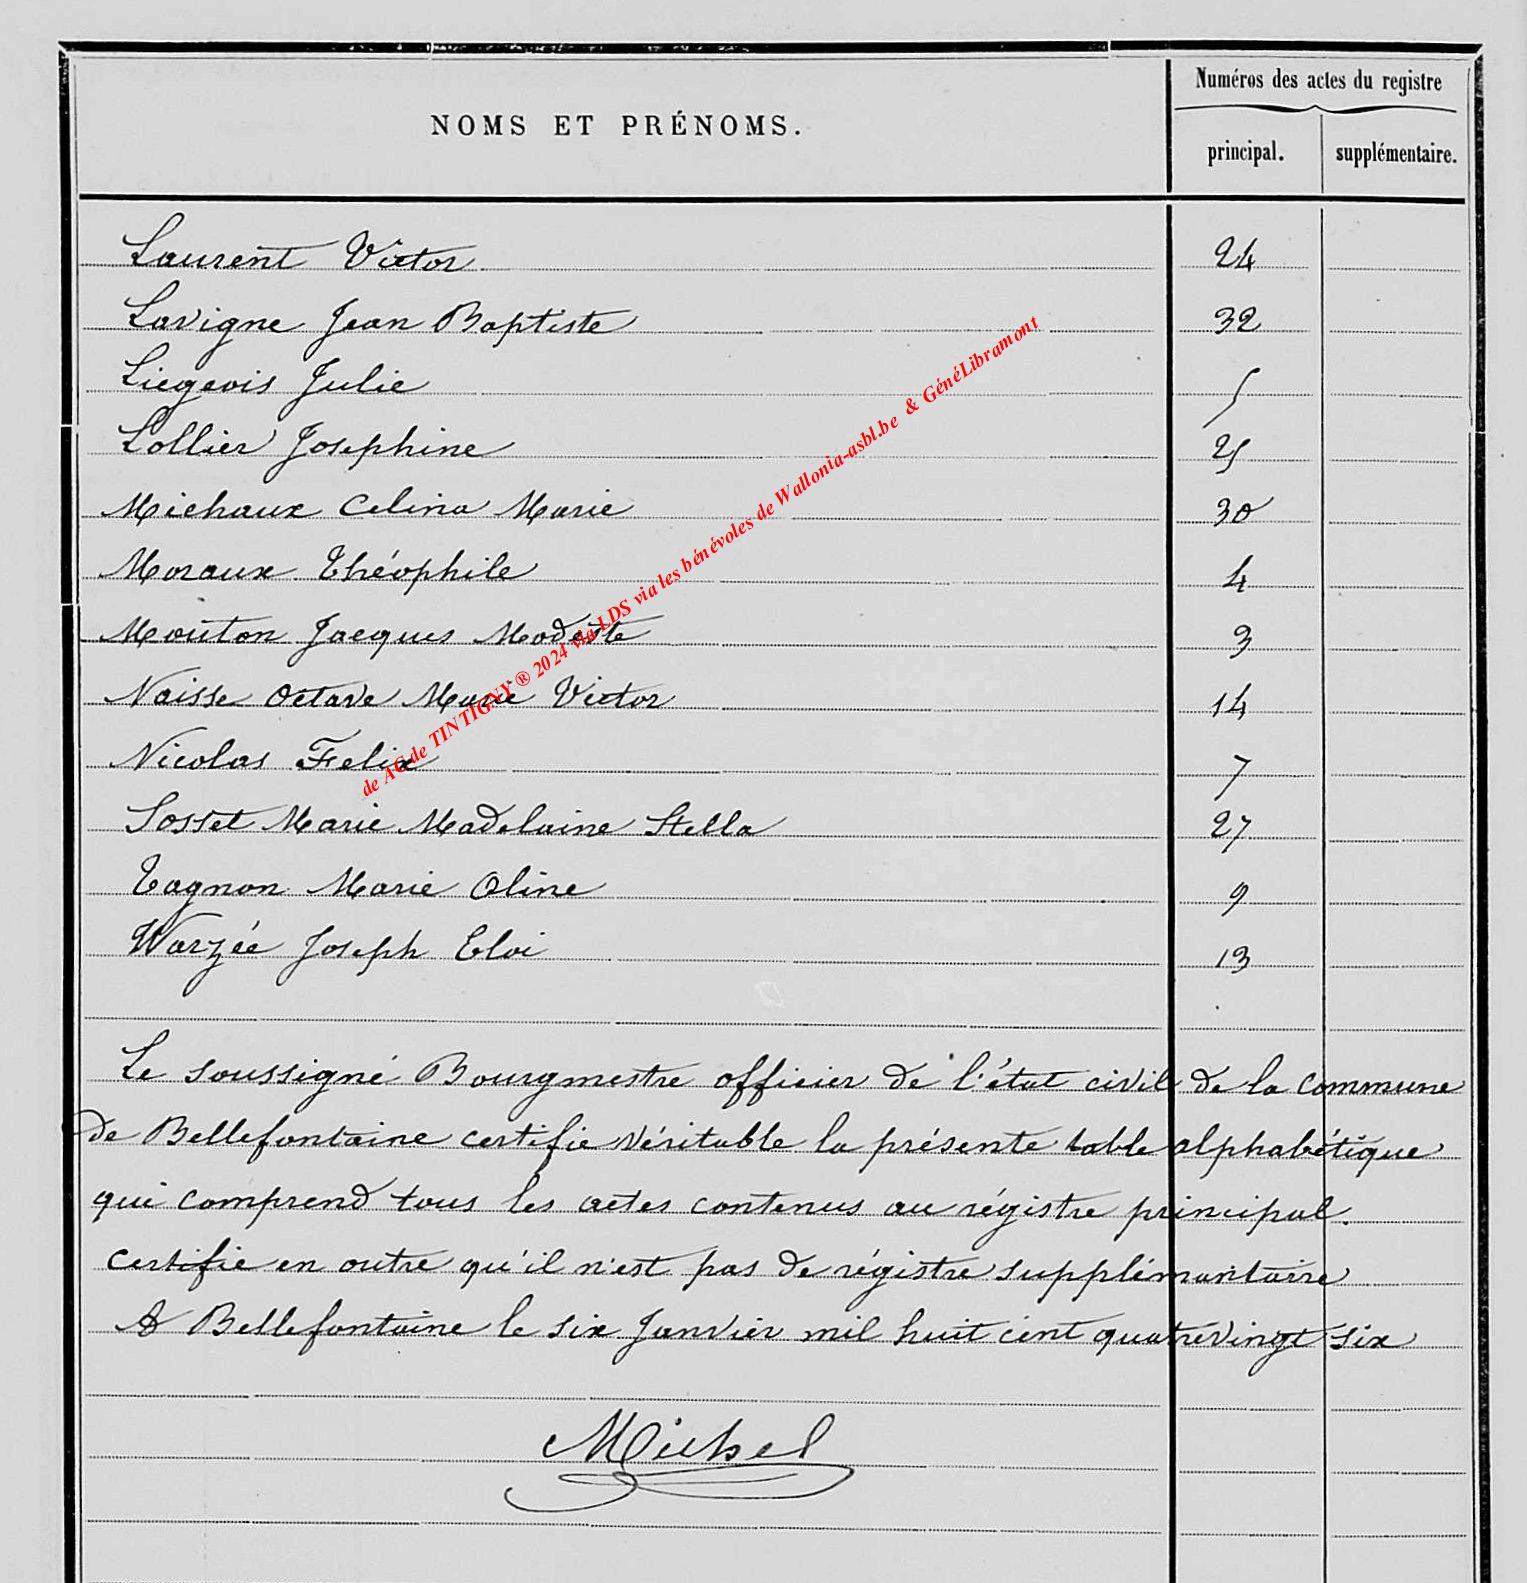 Numéros des actes du registre
NOMS ET PRÉNOMS.
principal. supplémentaire.
Laurent Victor 24
Lavigne Jean Baptiste 32
Liegeois Julie 5
Lollier Josephine 25
Michaux Celina Marie 30
Moraux Théophile 4
Mouton Jacques Modeste 3
Naisse Octave Marie Victor 14
Nicolas Felix 7
Sosset Marie Madelaine Stella 27
Tagnon Marie Oline 9
Warzée Joseph Eloi 13
de AC de TINTIGNY ® 2024 via LDS via les bénévoles de Wallonia-asbl.be & GénéLibramont
Le soussigné Bourgmestre officier de l'état civil de la commune
de Bellefontaine certifie véritable la présente table alphabétique
qui comprend tous les actes contenus au régistre principal.
certifie en outre qu'il n'est pas de régistre supplémantaire
A Bellefontaine le six Janvier mil huit cent quatrevingt six
Michel